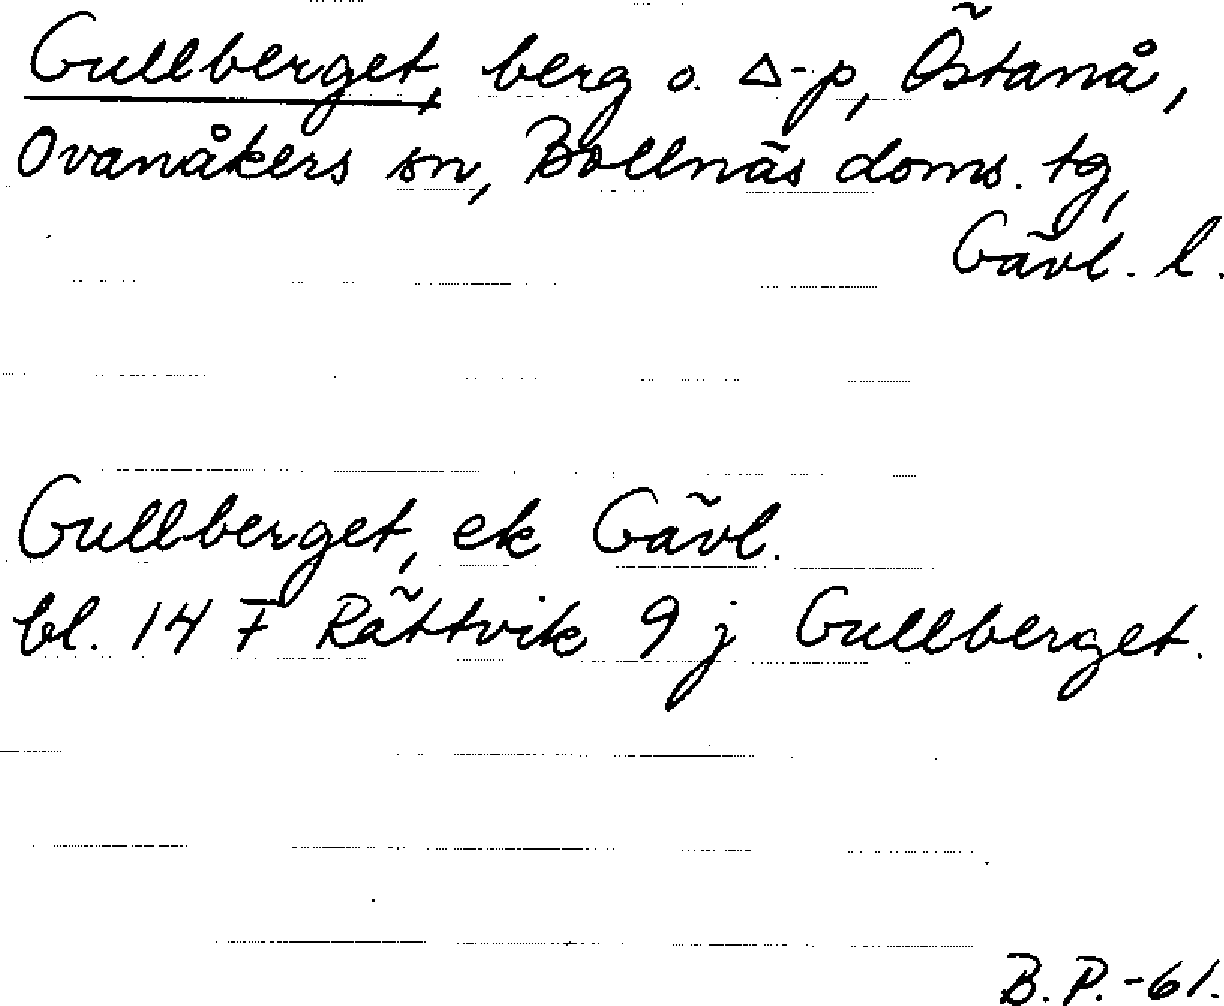 Gullberget, berg o. △-p, Östanå,
Ovanåkers sn, Bollnäs doms. tg,
Gävl. l.
Gullberget, ek Gävl.
bl. 14 F Rättvik 9 j Gullberget.
B.P. -61.